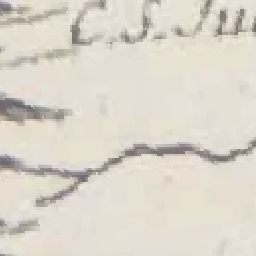 C.S. Ju